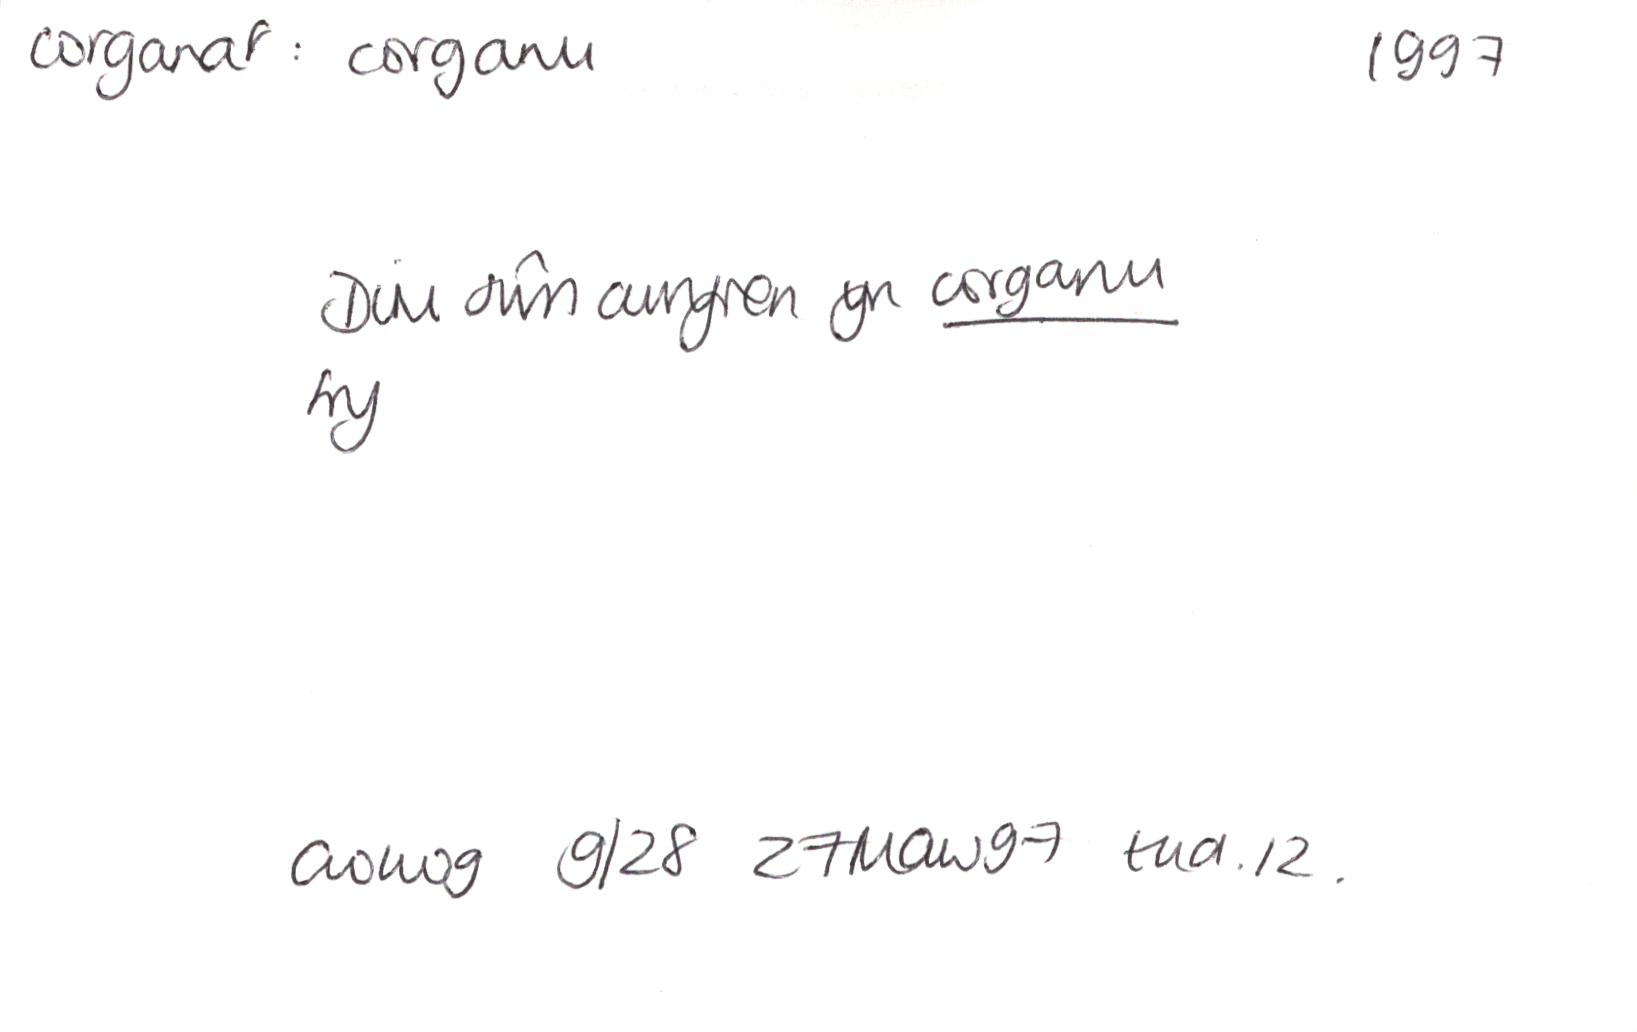 corganaf: corganu 1997
Dim sŵn awyren yn corganu
fry
Golwg 9/28 27 Maw 97 tud. 12.